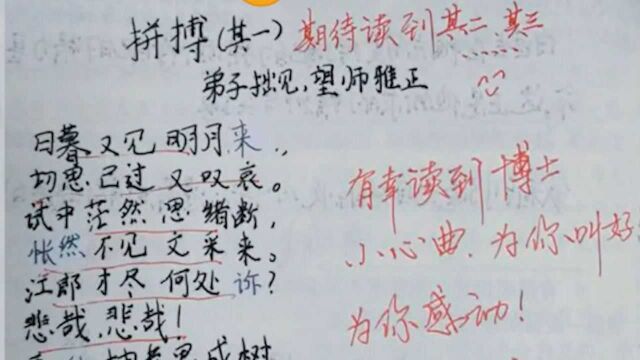 拼搏(其一) 期待读到其二 其三
弟子拙见,望师雅正
日暮又见明月来,
切思已过又叹哀。
试中茫然思绪断,
怅然不见文采来。
江郎才尽何处诉?
悲哉,悲哉!
有幸读到博士
小心曲.为你叫好
为你感动!